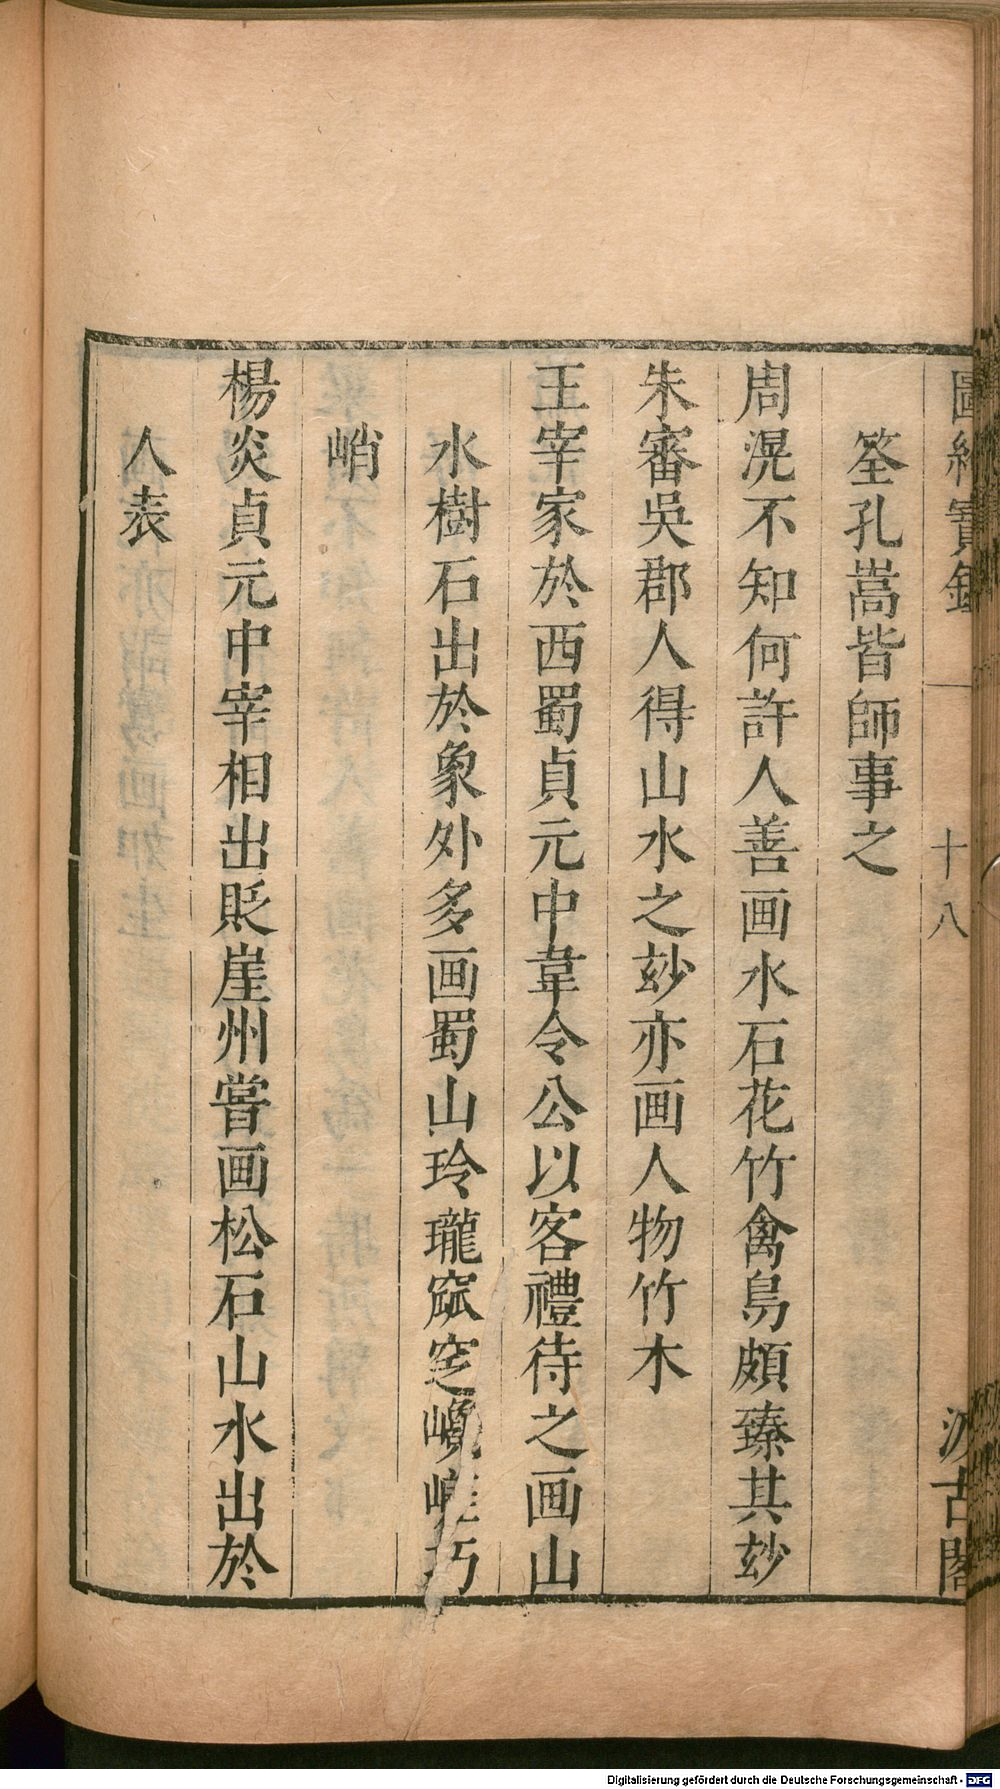 圖繪寶鑑 一 十八 汲古閣
筌孔嵩皆師事之
周滉不知何許人善画水石花竹禽鳥頗臻其玅
朱審吳郡人得山水之玅亦画人物竹木
王宰家於西蜀貞元中韋令公以客禮待之画山
水樹石出於象外多画蜀山玲瓏窳窆 巧
峭
楊炎貞元中宰相出貶崖州嘗画松石山水出於
人表
Digitalisierung gefördert durch die Deutsche Forschungsgemeinschaft - DFG